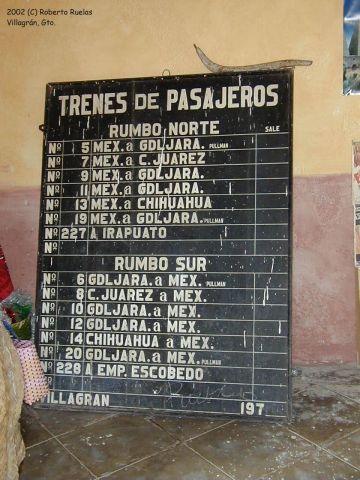 2002 (C) Roberto Ruelas
Villagrán, Gto.
TRENES DE PASAJEROS
RUMBO NORTE SALE
Nº 5 MEX. a GDLJARA. PULLMAN
Nº 7 MEX. a C. JUAREZ
Nº 9 MEX. a GDLJARA.
Nº 11 MEX. a GDLJARA.
Nº 13 MEX. a CHIHUAHUA
Nº 19 MEX. a GDLJARA. PULLMAN
Nº 227 A IRAPUATO
Nº
RUMBO SUR
Nº 6 GDLJARA. a MEX. PULLMAN
Nº 8 C. JUAREZ a MEX.
Nº 10 GDLJARA. a MEX.
Nº 12 GDLJARA. a MEX.
Nº 14 CHIHUAHUA a MEX.
Nº 20 GDLJARA. a MEX. PULLMAN
Nº 228 A EMP. ESCOBEDO
Nº
VILLAGRAN 197